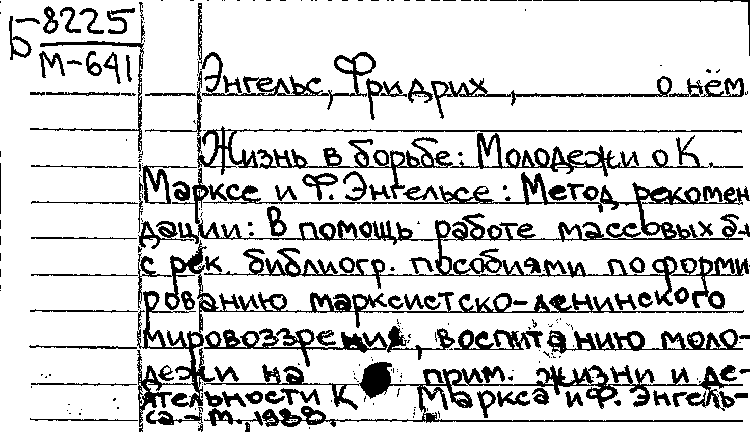 Б 8225
М-641
Энгельс, Фридрих, о нём
Жизнь в борьбе: Молодежи о К.
Марксе и Ф. Энгельсе: Метод. рекомен
дации: В помощь работе массовых б-к
с рек. библиогр. пособиями по форми
рованию марксистско-ленинского
мировоззрения, воспитанию моло-
дежи на прим. жизни и де-
ятельности К Маркса и Ф. Энгель-
са.- М., 1988.